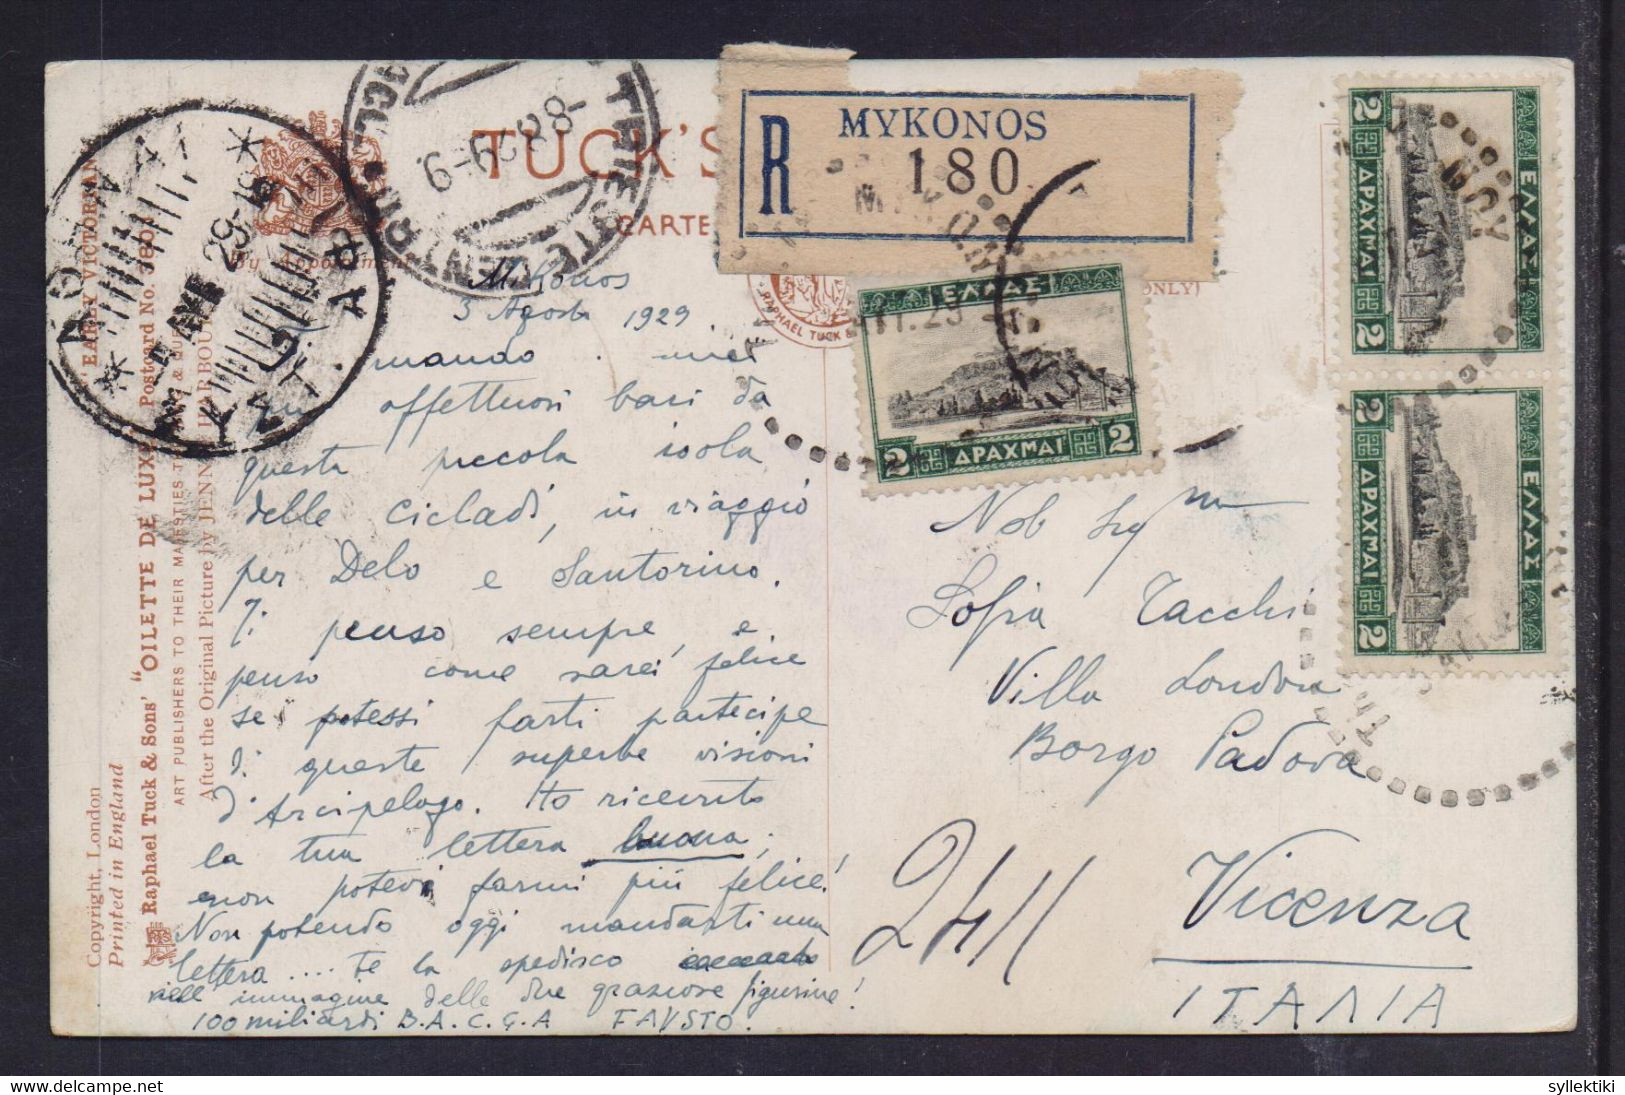 TUCK'S
CARTE
By Appointment
MYKONOS
R
180
TRIESTE CENTRO
ΑΘΗΝΑΙ
ONLY)
RAPHAEL TUCK &
ΕΛΛΑΣ
2 ΔΡΑΧΜΑΙ 2
ΕΛΛΑΣ
2 ΔΡΑΧΜΑΙ 2
ΕΛΛΑΣ
2 ΔΡΑΧΜΑΙ 2
Copyright, London
Printed in England
Raphael Tuck & Sons' "OILETTE DE LUXE" Postcard No.
ART PUBLISHERS TO THEIR MAJESTIES
After the Original Picture by JENNY HARBOUR
"EARLY VICTORIAN
Mikonos
3 Agosto 1929
mando
affettuosi baci da
questa piccola isola
delle Cicladi, in viaggio
per Delo e Santorino.
Ti penso sempre, e
penso come sarei felice
se potessi farti partecipe
di queste superbe visioni
d'Arcipelago. Ho ricevuto
la tua lettera buona;
non potevi farmi più felice!
Non potendo oggi mandarti una
lettera .... te la spedisco
nell immagine delle due graziose figurine!
100 miliardi B.A.C.G.A FAUSTO.
Nob Sig
Sofia Tacchi
Villa London
Borgo Padova
Vicenza
ΙΤΑΛΙΑ
2411
syllektiki